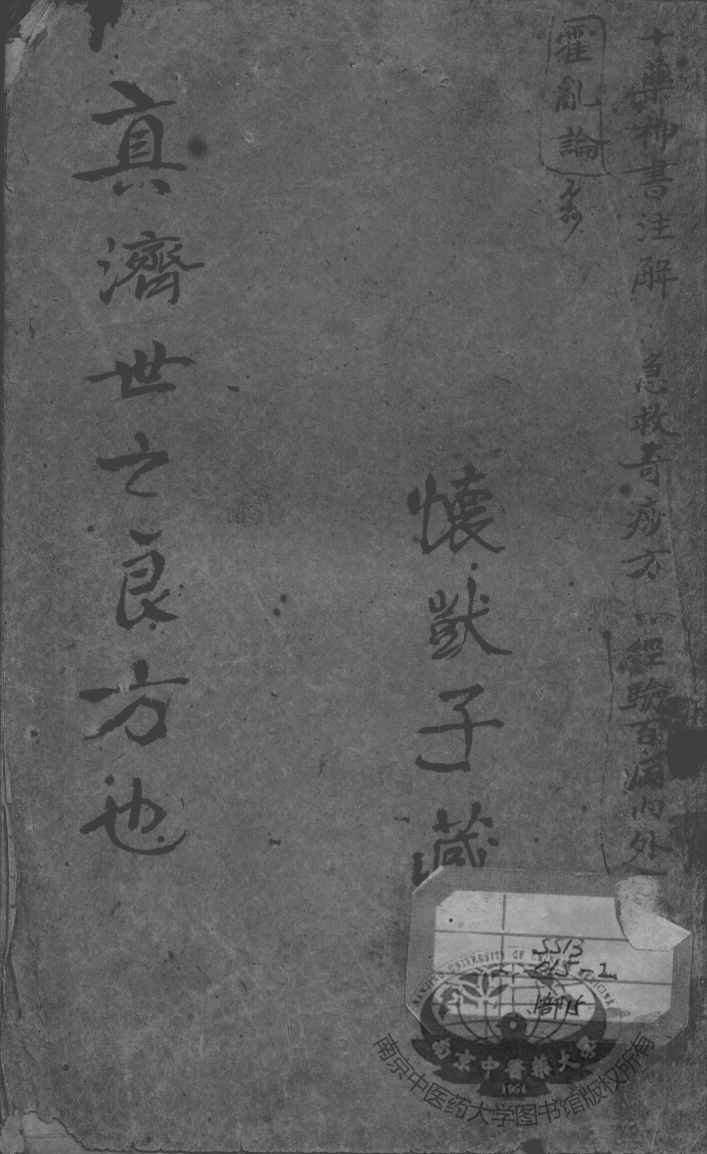 十藥神書注解 急救奇痧方 經驗百病內外
霍亂論
懷獃子藏
真濟世之良方也
5513
015
南京中醫藥大學
1954
南京中医药大学图书馆版权所有